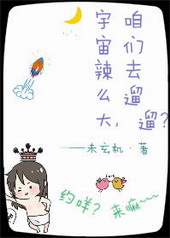 宇宙辣么大，
咱们去遛遛？
——未玄机·著
约咩？
来嘛~~~